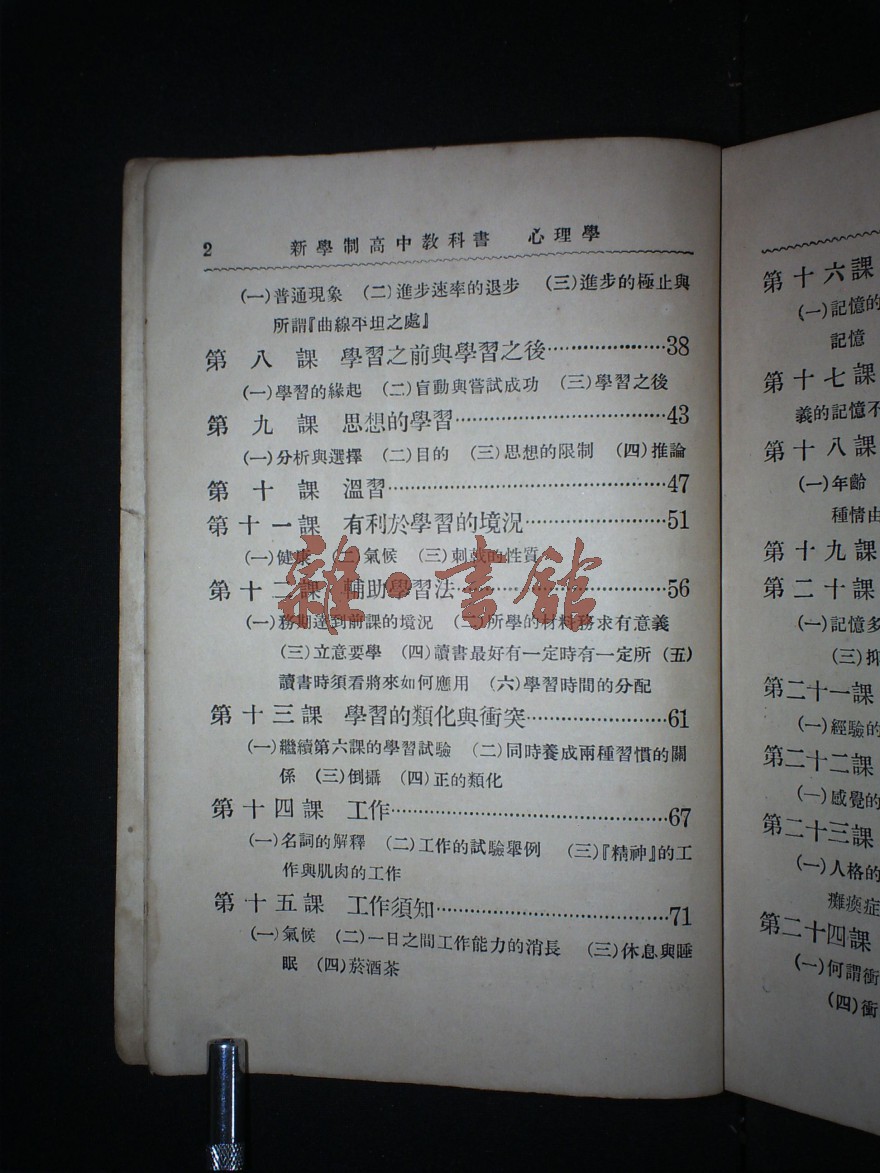 2 新學制高中教科書 心理學
(一)普通現象 (二)進步速率的退步 (三)進步的極止與
所謂『曲線平坦之處』
第八課 學習之前與學習之後…………………38
(一)學習的緣起 (二)盲動與嘗試成功 (三)學習之後
第九課 思想的學習…………………………………43
(一)分析與選擇 (二)目的 (三)思想的限制 (四)推論
第十課 溫習…………………………………………47
第十一課 有利於學習的境況………………………51
(一)健康 (二)氣候 (三)刺戟的性質
第十二課 輔助學習法………………………………56
(一)務期達到前課的境況 (二)所學的材料務求有意義
(三)立意要學 (四)讀書最好有一定時有一定所 (五)
讀書時須看將來如何應用 (六)學習時間的分配
第十三課 學習的類化與衝突………………………61
(一)繼續第六課的學習試驗 (二)同時養成兩種習慣的關
係 (三)倒攝 (四)正的類化
第十四課 工作………………………………………67
(一)名詞的解釋 (二)工作的試驗舉例 (三)『精神』的工
作與肌肉的工作
第十五課 工作須知…………………………………71
(一)氣候 (二)一日之間工作能力的消長 (三)休息與睡
眠 (四)菸酒茶
雜·書館
第十六課
(一)記憶的
記憶
第十七課
義的記憶不
第十八課
(一)年齡
種情由
第十九課
第二十課
(一)記憶多
(三)抑
第二十一課
(一)經驗的
第二十二課
(一)感覺的
第二十三課
(一)人格的
癱瘓症
第二十四課
(一)何謂衝
(四)衝